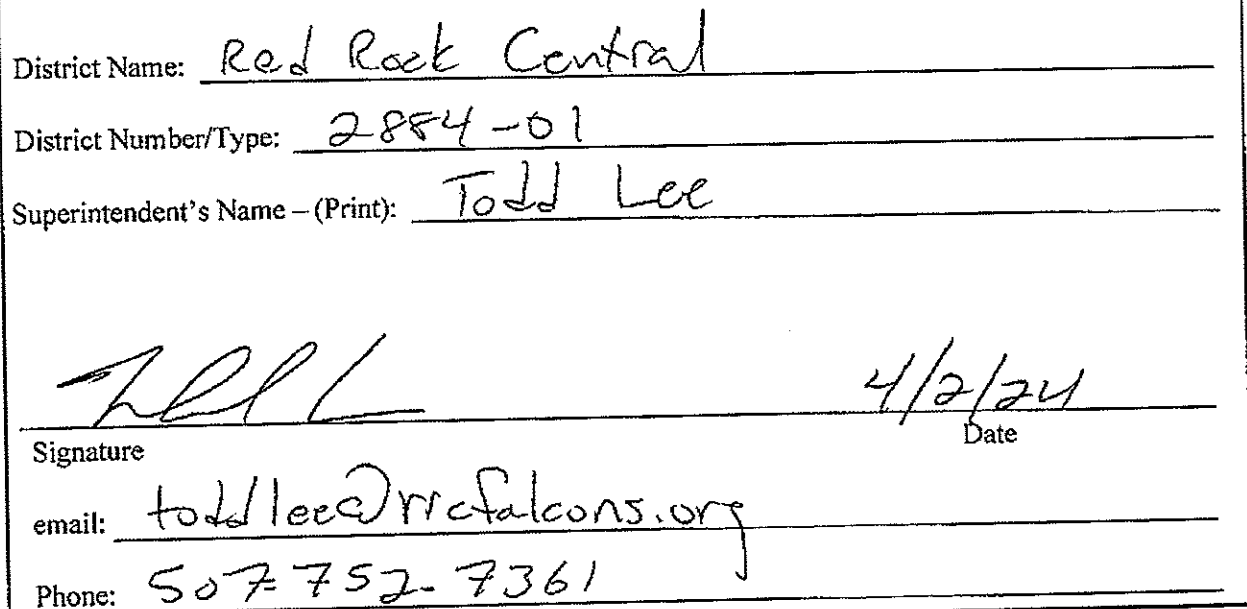 District Name: Red Rock Central
District Number/Type: 2884-01
Superintendent's Name – (Print): Todd Lee
4/2/24
Signature Date
email: toddlee@rrcfalcons.org
Phone: 507-752-7361